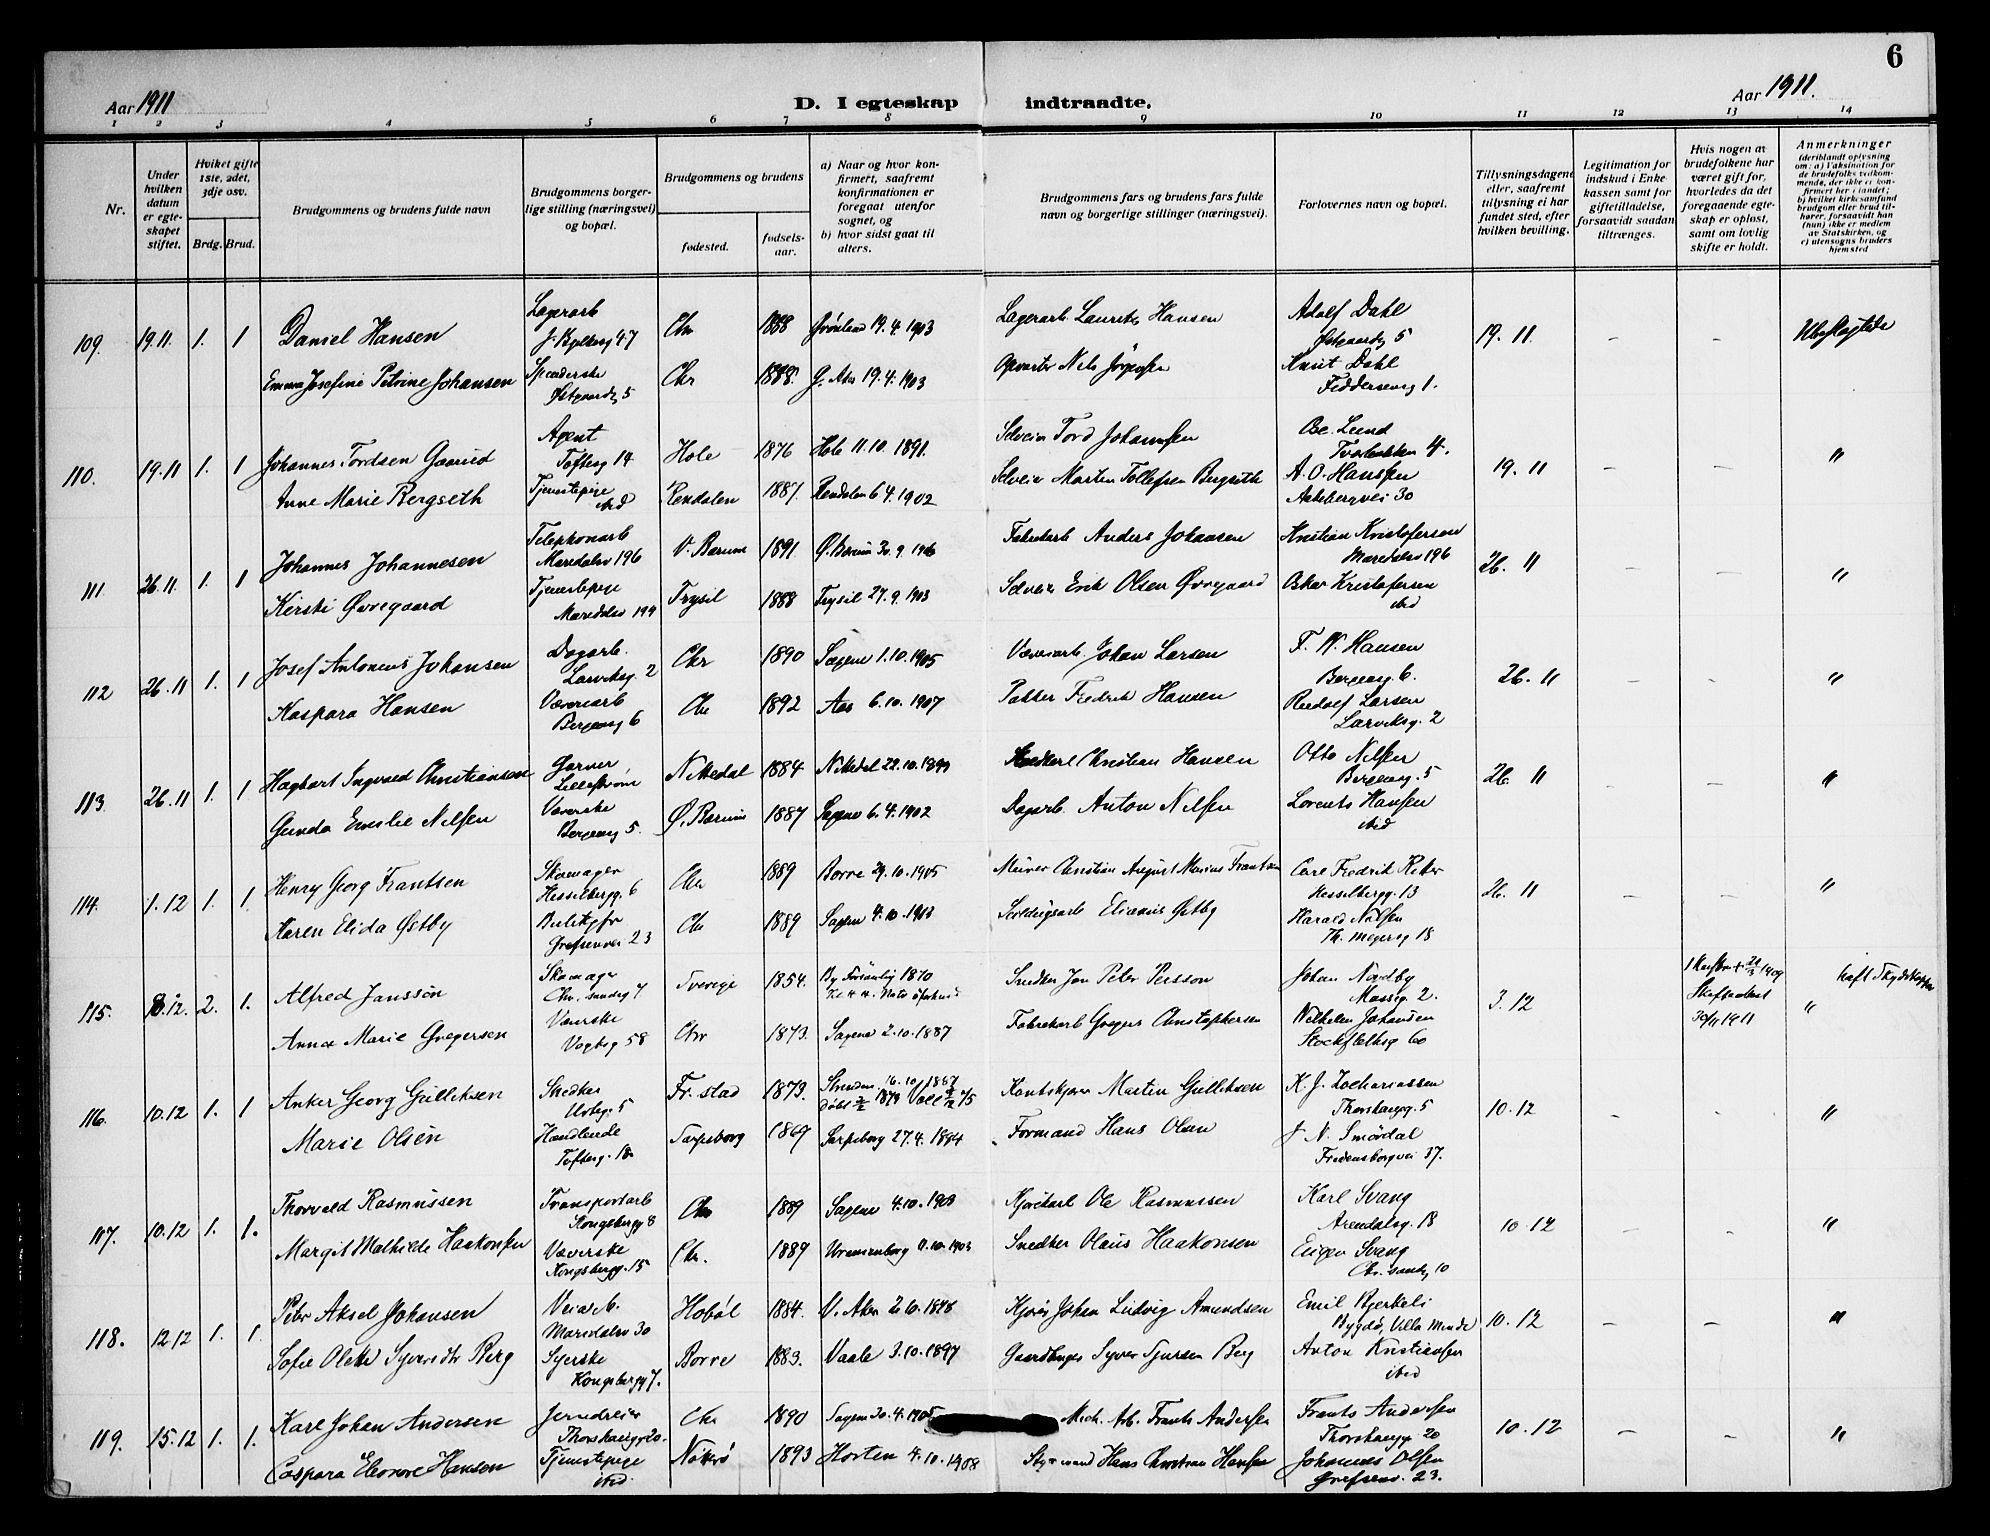 6
Aar 1911
D. I egteskap indtraadte.
Aar 1911.
1 2 3 4 5 6 7 8 9 10 11 12 13 14
Nr.
Under hvilken datum er egteskapet stiftet.
Hvilket gifte 1ste, 2det, 3dje osv.
Brdg. Brud.
Brudgommens og brudens fulde navn
Brudgommens borgerlige stilling (næringsvei) og bopæl.
Brudgommens og brudens
fødested.
fødselsaar.
a) Naar og hvor konfirmert, saafremt konfirmationen er foregaat utenfor sognet, og
b) hvor sidst gaat til alters.
Brudgommens fars og brudens fars fulde navn og borgerlige stillinger (næringsvei).
Forlovernes navn og bopæl.
Tillysningsdagene eller, saafremt tillysning ei har fundet sted, efter hvilken bevilling.
Legitimation for indskud i Enkekassen samt for giftetilladelse, forsaavidt saadan tiltrænges.
Hvis nogen av brudefolkene har været gift før, hvorledes da det foregaaende egteskap er opløst, samt om lovlig skifte er holdt.
Anmerkninger
(deriblandt oplysning om: a) Vaksination for de brudefolks vedkommende, der ikke er konfirmert her i landet; b) hvilket kirkesamfund brudgom eller brud tilhører, forsaavidt han (hun) ikke er medlem av Statskirken, og c) utensogns bruders hjemsted
109. 19.11 1. 1 Daniel Hansen Lagerarb Chr 1888 Grønland 19.4.1903 Lagerarb. Laurits Hansen Adolf Dahl Østgaardsg 5 19.11. - -
Emma Josefine Petrine Johansen Spinderske Østgaardsg 5 Chr 1888. G. Aker 19.4.1903 Nils Jörgensen Knut Dahl Feddersensg 1.
110. 19.11 1. 1 Johannes Tordsen Gaarud Agent Tofteg 14 Hole 1876 Hole 11.10.1891. Selveier Tord Johannsen Lund 4. 19.11 - - "
Anne Marie Bergseth Tjenestepige ibid Rendalen 1881. Rendalen 6.4.1902 Selveier Morten Tollefsen Bergseth A. O. Hanssen 30
111. 26.11. 1. 1 Johannes Johannesen Telephonarb Maridalsv 196 V. Bærum 1891. Ø. Bærum 30.9.1906 Fabrikarb Anders Johansen Kristian Kristofersen Maridalsv 196 26.11 - - "
Kirsti Øvregaard Tjenestepige Maridalsv 194 Trysil 1888 Trysil 27.9.1903 Selveier Erik Olsen Øvregaard Oskar Kristofersen ibid
112 26.11 1. 1 Josef Antonius Johansen Dagarb. Larviksg. 2 Chr 1890 Sagene 1.10.1905 Væveriarb. Johan Larsen F. W. Hansen Bergensg. 6. 26.11 - - "
Kaspara Hansen Væveriarb Bergensg 6 Chr 1892 Aas 6.10.1907 Pakker Fredrik Hansen Rudolf Larsen Larviksg. 2
113. 26.11 1. 1 Hagbart Ingvald Christiansen Garver Lillestrøm Nittedal 1884 Nittedal 22.10.1899 Christian Hansen Otto Nilsen Bergensg. 5 26.11 - - "
Gunda Emilie Nilsen Væverske Bergensg 5. Ø. Bærum 1887 Sagene 6.4.1902 Dagarb. Anton Nilsen Lorents Hansen ibid
114. 1.12 1. 1. Henry Georg Frantsen Skomager Hesselbergg. 6 Chr 1889 Borre 29.10.1905 Murer Christian August Marius Frantsen Carl Fredrik Hesselbergg. 13 26.11 - - "
Karen Elida Østby Butikjfr Grefsenvei 23 Chr 1889 Sagene 4.10.1903 Elianus Østby Harald Nilsen Th. Meyersg 18
115. 8.12. 2. 1. Alfred Jansson Skomager Chr.sandsg 7 Sverige 1854. By Försanlig 1870 Snedker Jan Peter Persson Johan Nordby Mossg. 2. 3.12 1909 Skifteattest 30/11 1911 "
Anna Marie Gregersen Væverske Vogtsg 58 Chr 1873. Sagene 2.10.1887 Fabrikarb Gregers Christophersen Wilhelm Johansen Stockflethsg 60
116. 10.12 1. 1 Anker Georg Gulliksen Snedker 5 Fr. stad 1873. 16.10.1887 Martin Gulliksen K. J. Zachariassen Thorshaugg. 5 10.12 - - "
Marie Olsen Handlende Tofteg. 18 Sarpsborg 1869 Sarpsborg 27.4.1884 Formand Hans Olsen J N. Smördal Fredensborgvei 37.
117. 10.12 1. 1. Thorvald Rasmussen Transportarb Kongsbergg 8 Chr 1889 Sagene 4.10.1903 Kjörekarl Ole Rasmussen Karl Svang Arendalsg. 18 10.12 - - "
Margit Mathilde Haakonsen Væverske Kongsbergg. 15 Chr. 1889 Uranienborg 11.10.1903 Snedker Olaus Haakonsen Eugen Svang Chr.sandsg 10
118. 12.12 1. 1. Peter Aksel Johansen Maridalsv 30 Hobøl 1884. V. Aker 2.10.1898 Johan Ludvig Amundsen Emil Bjerkeli Bygdø, Villa Minde 10.12 - - "
Sofie Oleth Syversdtr Berg Syerske Kongsbergg 7. Borre 1883. Vaale 3.10.1897 Syver Berg Anton Kristiansen ibid
119. 15.12 1. 1. Karl Johan Andersen Jerndreier Thorshaugg 20. Chr 1890 Sagene 30.4.1905 Mek. Arb. Frants Andersen Frants Andersen Thorshaugg 20 10.12 - - "
Caspara Eleonore Hansen Tjenestepige ibid. Nøtterø 1893 Horten 4.10.1908 Styrmand Hans Christian Hansen Johannes Olsen Grefsenv. 23.